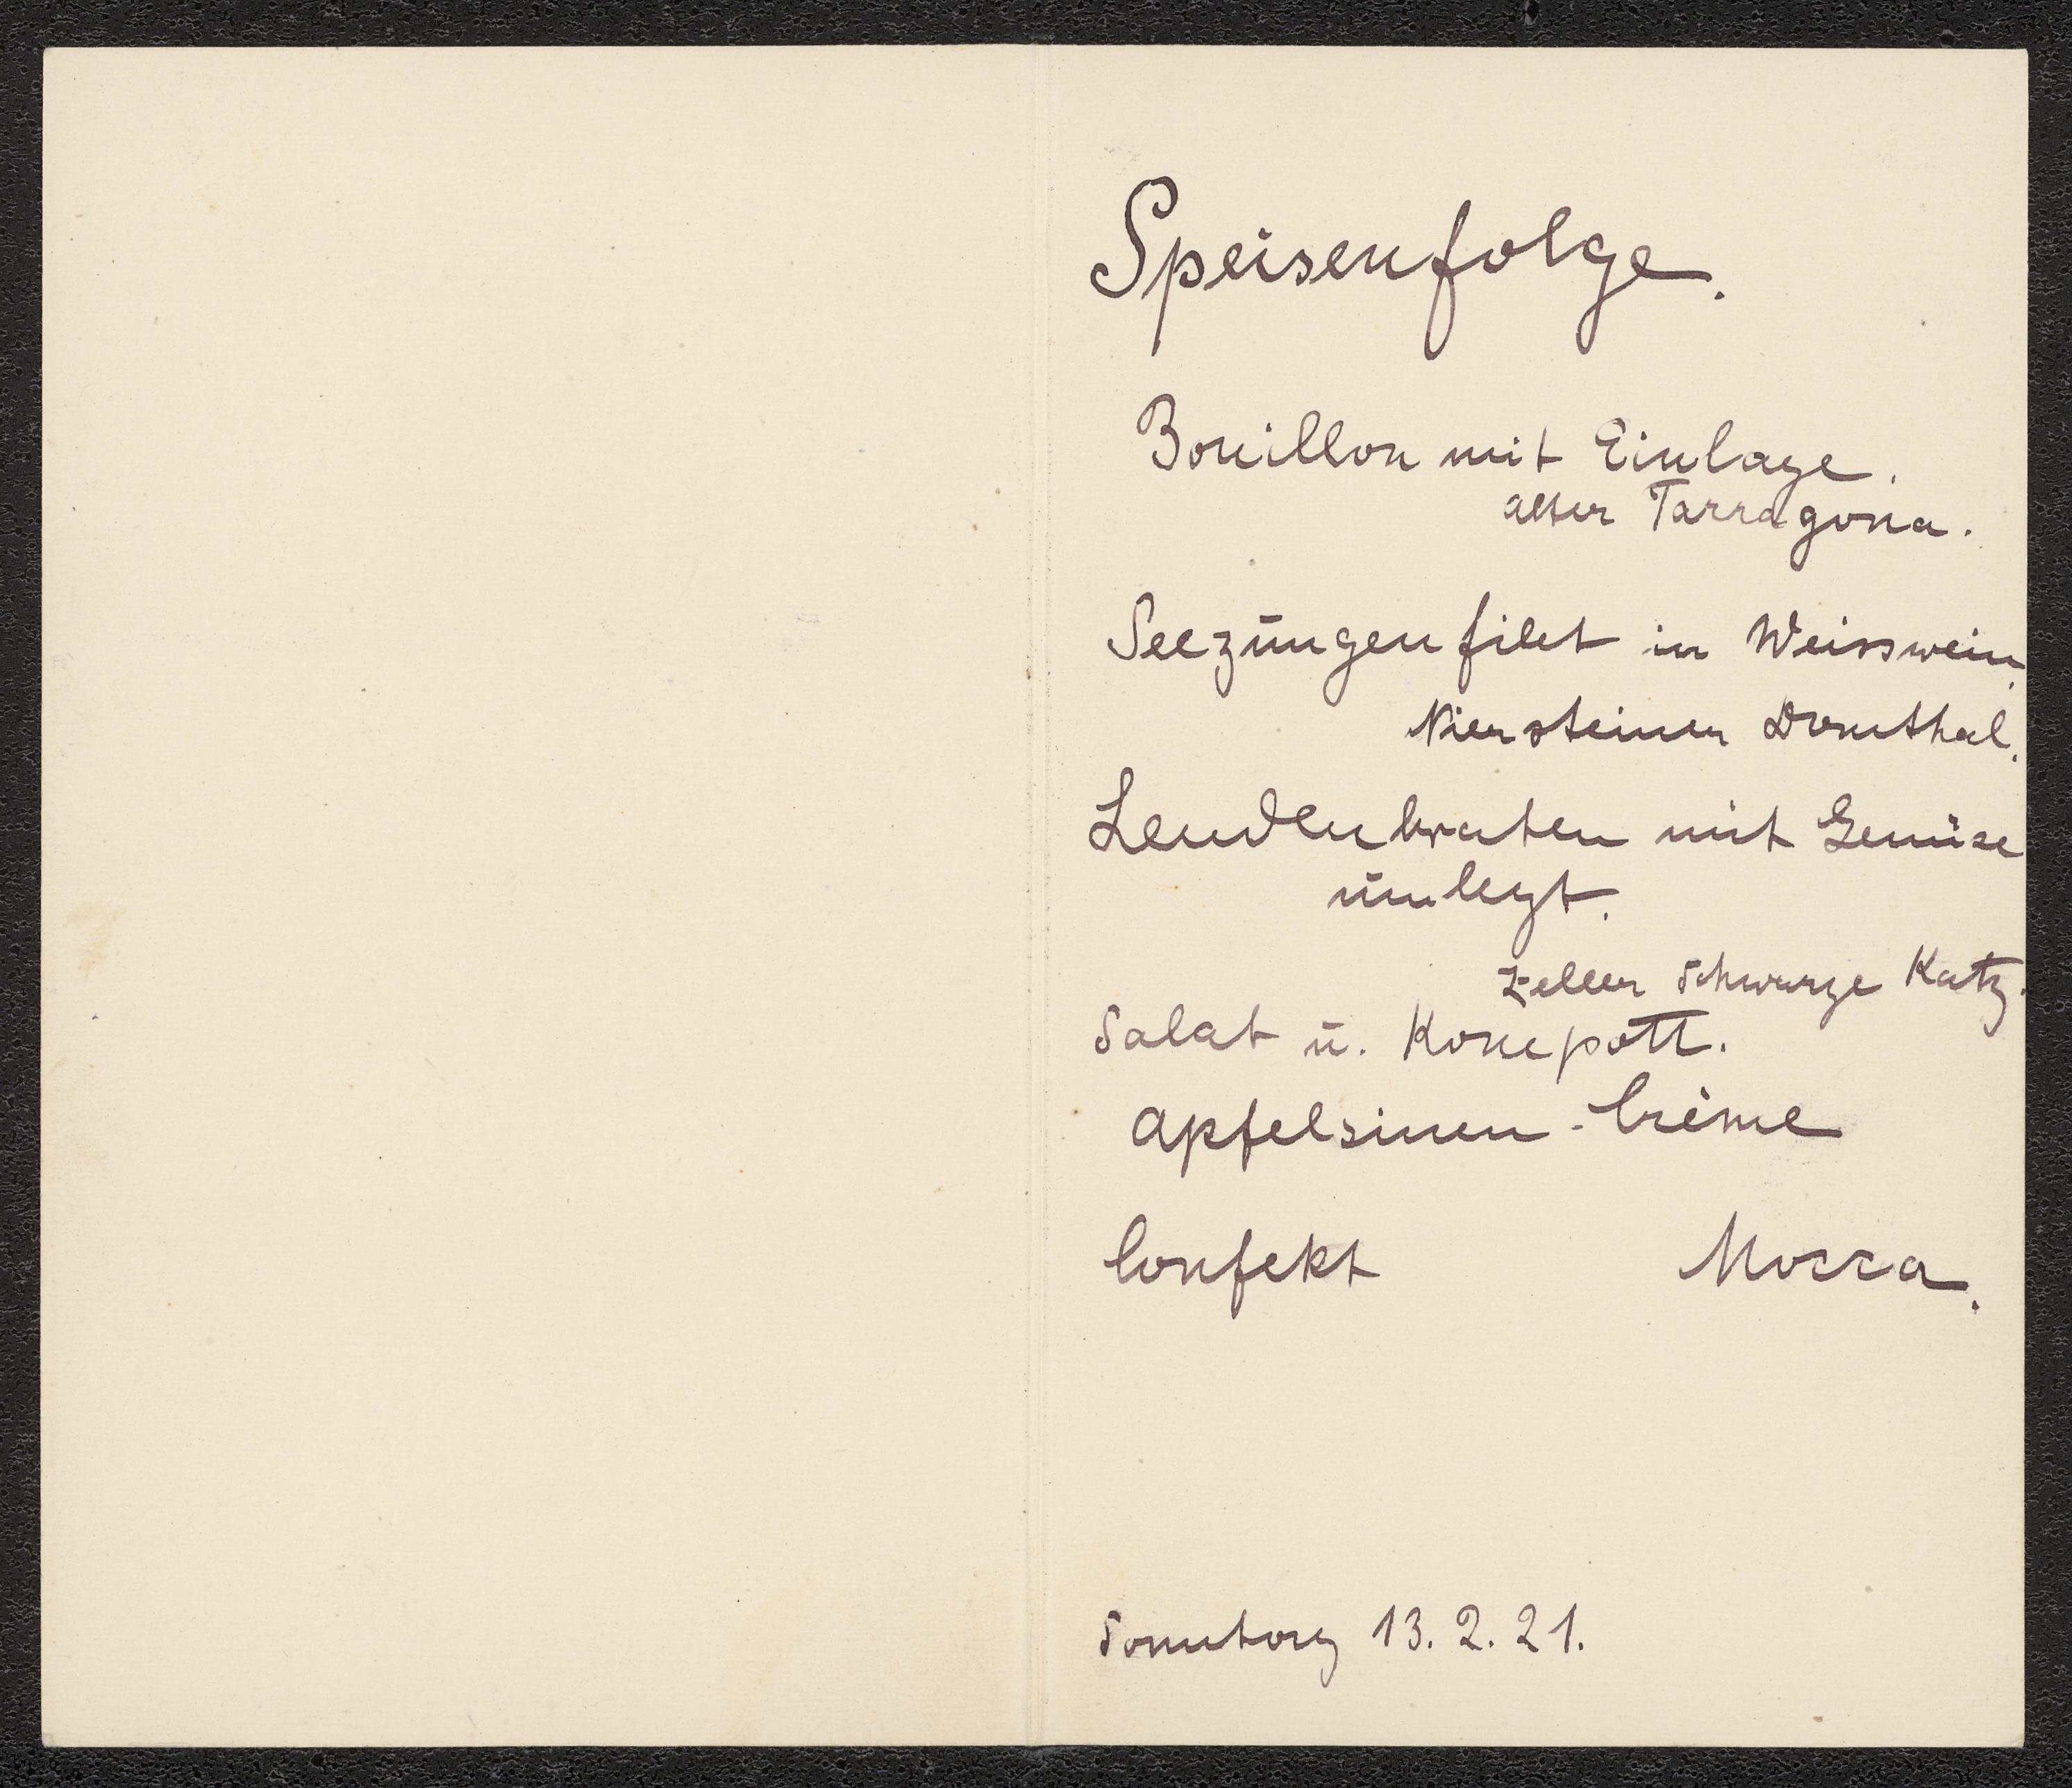 Speisenfolge.
Bouillon mit Einlage.
alter Tarragona.
Seezungenfilet in Weisswein.
Niersteiner Domthal.
Lendenbraten mit Gemüse
umlegt.
Zeller Schwarze Katz.
Salat u. Kompott.
Apfelsinen-Crème
Confekt Mocca.
Sonntag 13. 2. 21.